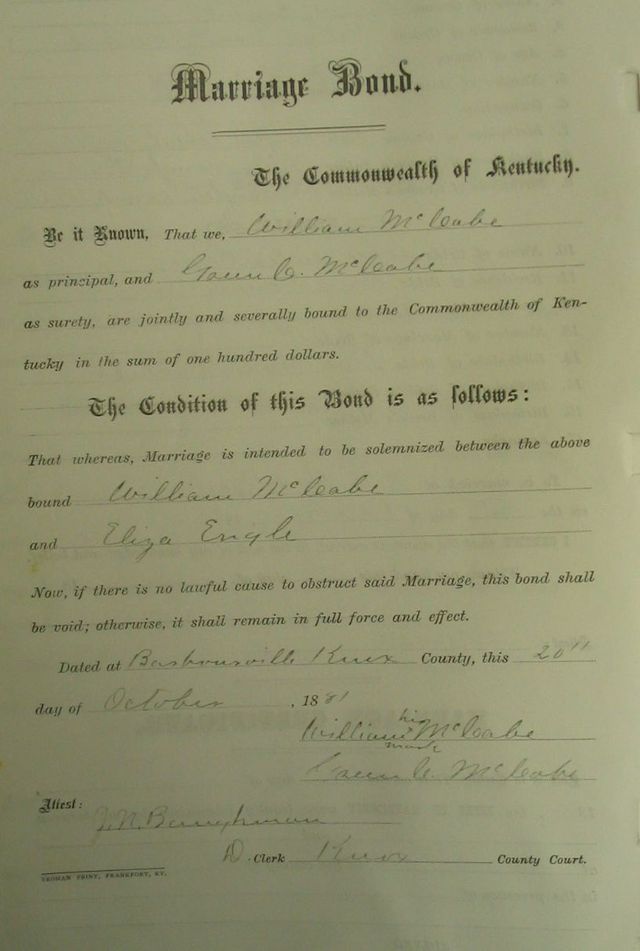 Marriage Bond.
The Commonwealth of Kentucky.
Be it Known, That we, William McCabe
as principal, and Green C. McCabe
as surety, are jointly and severally bound to the Commonwealth of Ken-
tucky in the sum of one hundred dollars.
The Condition of this Bond is as follows:
That whereas, Marriage is intended to be solemnized between the above
bound William McCabe
and Eliza Engle
Now, if there is no lawful cause to obstruct said Marriage, this bond shall
be void; otherwise, it shall remain in full force and effect.
Dated at Barbourville Knox County, this 20"
day of October, 1881
his
William McCabe
mark
Green C. McCabe
Attest:
D. Clerk Knox County Court.
YEOMAN PRINT, FRANKFORT, KY.